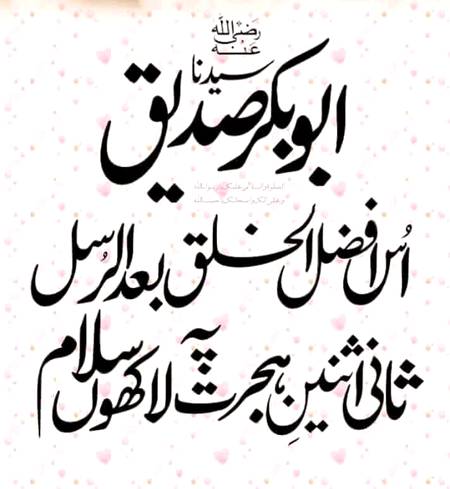 رضی اللہ
عنہ
سیدنا
ابوبکر صدیق
اُس افضل الخلق بعد الرُسل
ثانی اثنینِ ہجرت پہ لاکھوں سلام